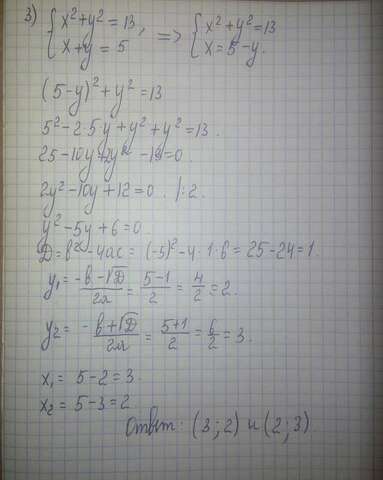 3) { x² + y² = 13, x + y = 5 => { x² + y² = 13 x = 5 - y.
(5 - y)² + y² = 13
5² - 2·5y + y² + y² = 13.
25 - 10y + 2y² - 13 = 0.
2y² - 10y + 12 = 0. |:2.
y² - 5y + 6 = 0.
D = b² - 4ac = (-5)² - 4·1·6 = 25 - 24 = 1.
y₁ = (-b - √D)/2a = (5-1)/2 = 4/2 = 2.
y₂ = (-b + √D)/2a = (5+1)/2 = 6/2 = 3.
x₁ = 5 - 2 = 3.
x₂ = 5 - 3 = 2
Ответ: (3; 2) и (2; 3)